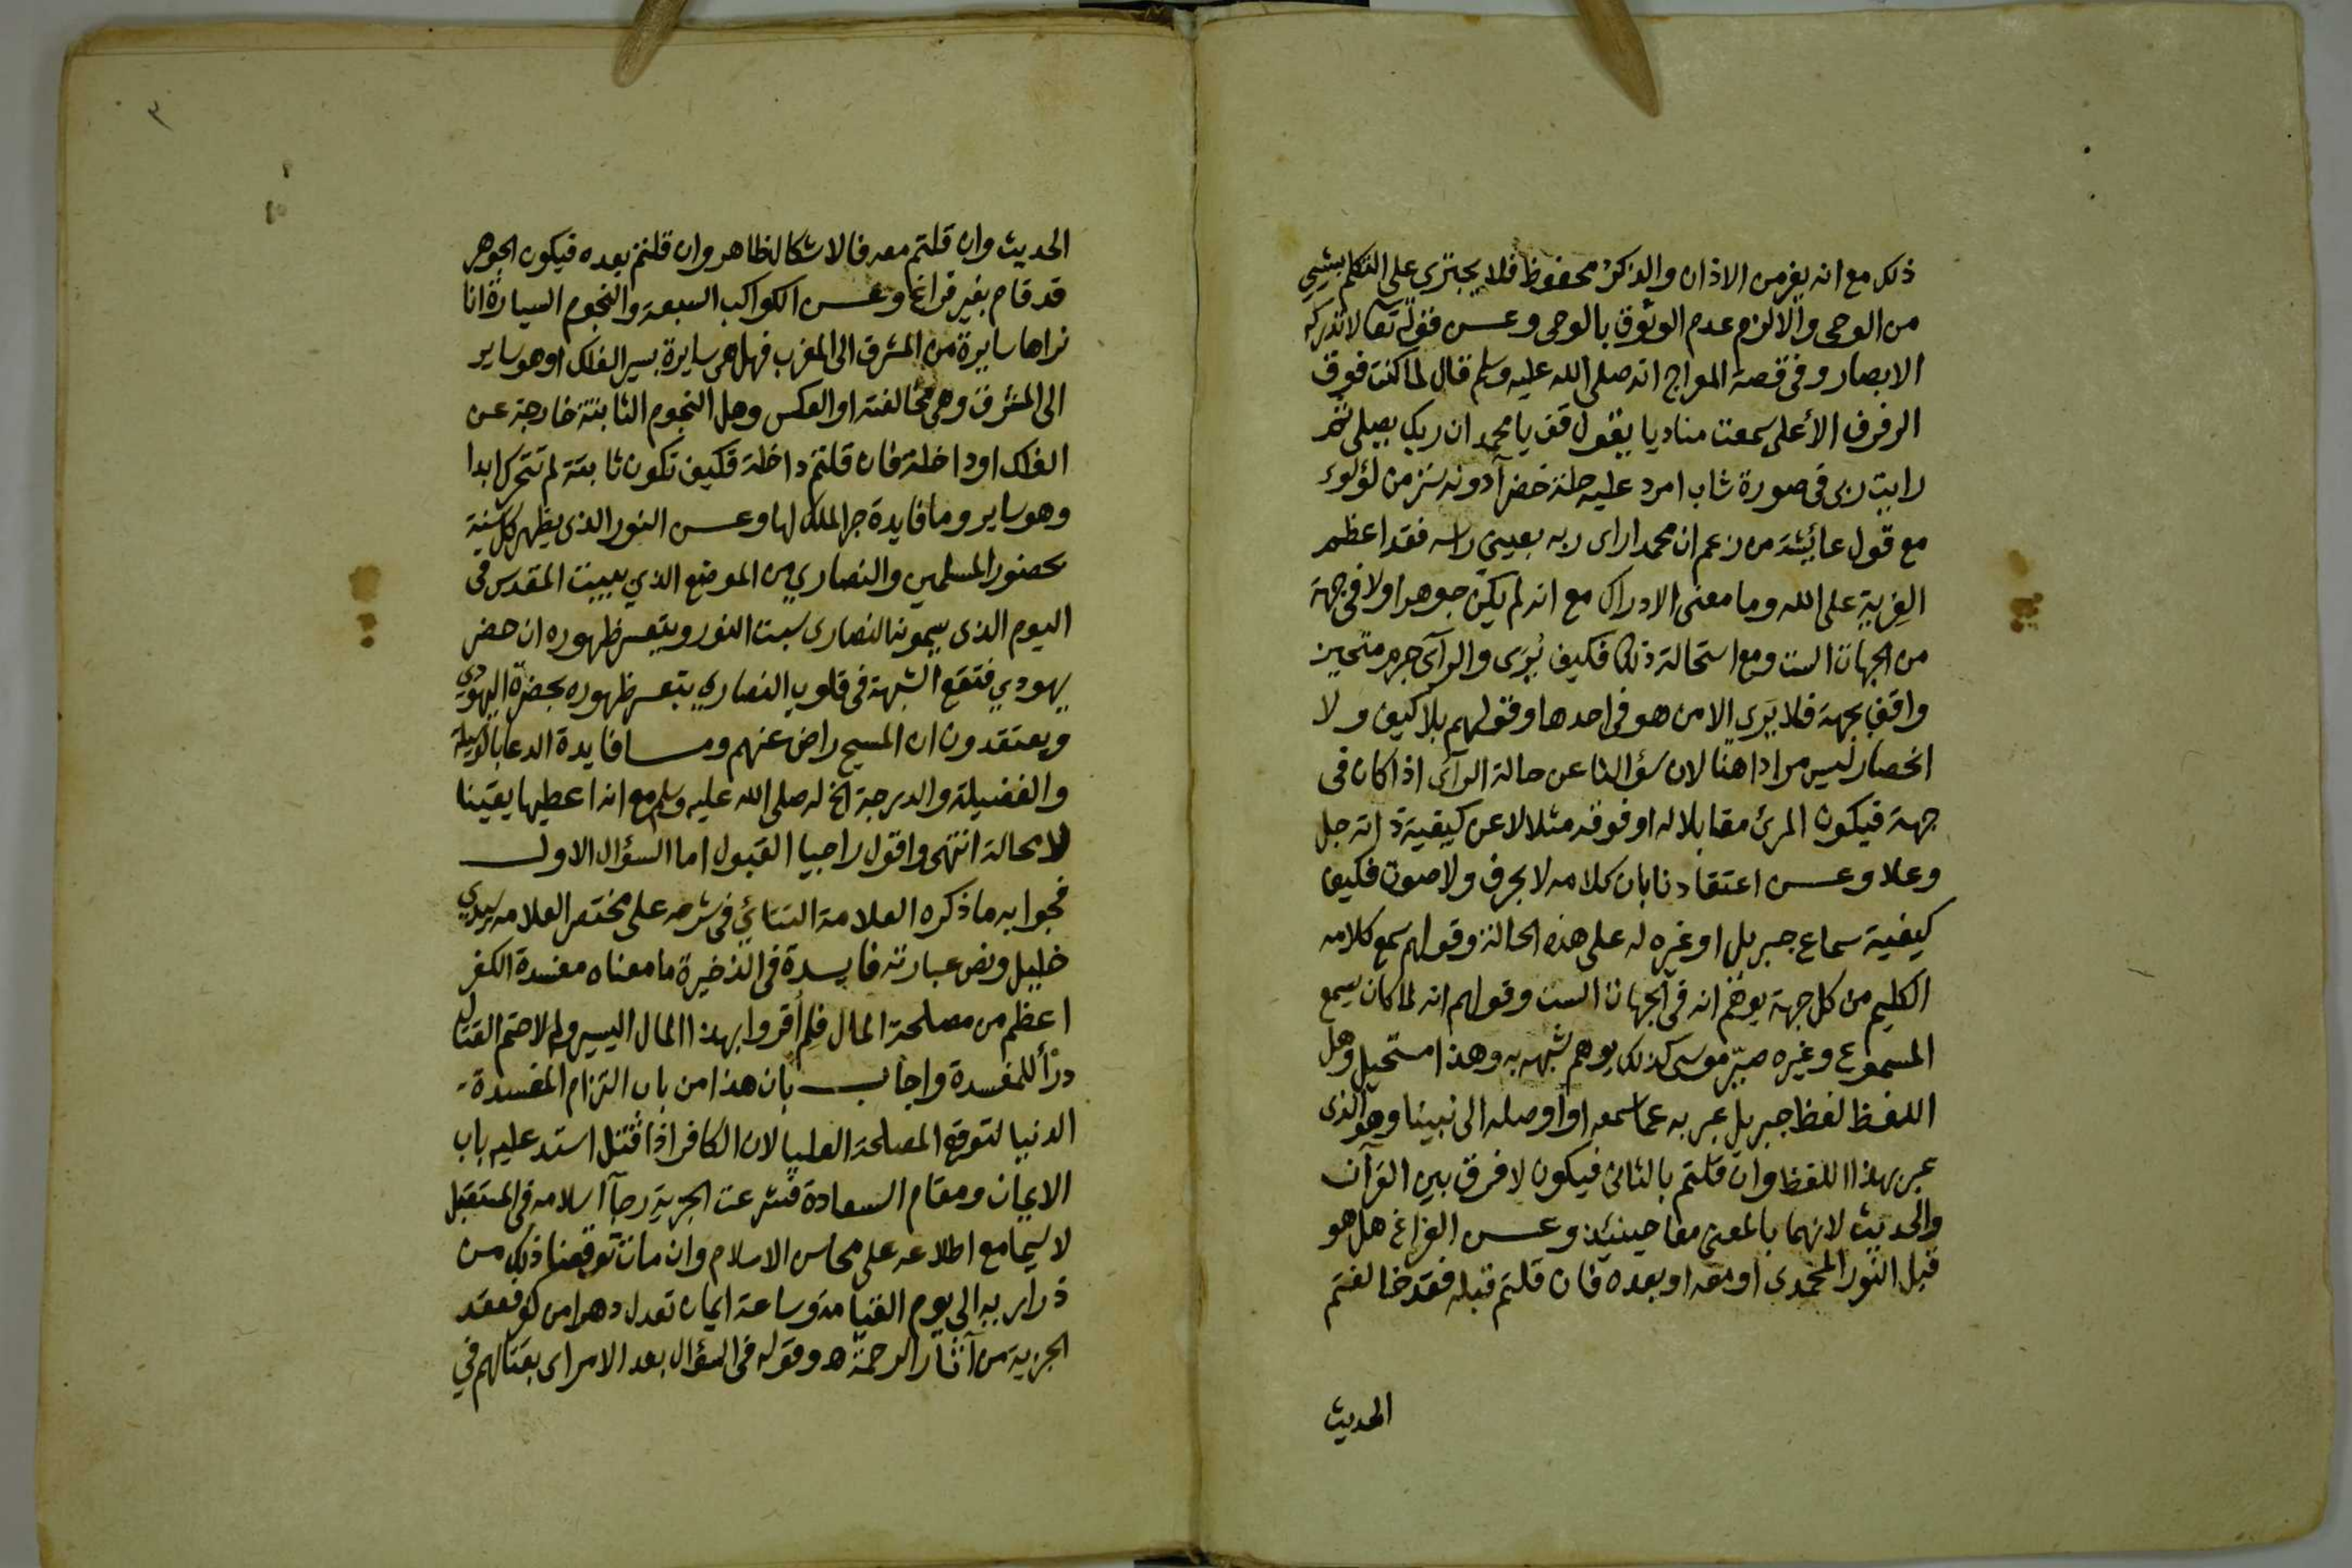 ذلك مع انه يفر من الاذان والذكر محفوظ فلا يجترى على التكلم بشيي
من الوحى والا لزم عدم الوثوق بالوحى وعن قوله تعا لا تدركه
الابصار وفى قصة المعراج انه صلى الله عليه وسلم قال لما كنت فوق
الرفرف الأعلى سمعت مناديا يقول قف يا محمد ان ربك يصلى ثم
رايت ربى فى صورة شاب امرد عليه حلة خضرآ دونه ستر من لؤلوء
مع قول عائيشة من زعم ان محمدا راى ربه بعيني راسه فقد اعظم
الفرية على الله وما معنى الادراك مع انه لم يكن جوهرا ولا فى جهة
من الجهات الست ومع استحالة ذلك فكيف يُرَى والرآى جرم متحيز
واقف بجهة فلا يَرَى الا من هو فى احدها وقولهم بلا كيف ولا
انحصار ليس مرادا هنا لان سؤالنا عن حالة الرآى اذا كان فى
جهة فيكون المرئ مقابلا له او فوقه مثلا لا عن كيفية ذاته جل
وعلا وعن اعتقادنا بان كلامه لا بحرف ولا صوت فكيف
كيفية سماع جبريل او غيره له على هذه الحالة وقولهم سمع كلامه
الكليم من كل جهة يوهم انه فى الجهات الست وقولهم انه لما كان يسمع
المسموع وغيره صيّر موسى كذلك يوهم شبهه به وهذا مستحيل وهل
اللفظ لفظ جبريل عبر به عما سمعه او اوصله الى نبينا وهو الذى
عبر بهذا اللفظ وان قلتم بالثانى فيكون لا فرق بين القرآن
والحديث لانهما بالمعنى معا حينئذ وعن الفراغ هل هو
قبل النور المحمدى او معه او بعده فان قلتم قبله فقد خالفتم
الحديث
٣
الحديث وان قلتم معه فالاشكال ظاهر وان قلتم بعده فيكون الجوهر
قد قام بغير فراغ وعن الكواكب السبعة والنجوم السيارة انا
نراها سايرة من المشرق الى المغرب فهل هى سايرة بسير الفلك او هو ساير
الى المشرق وهى مخالفته او العكس وهل النجوم الثابتة خارجة عن
الفلك او داخلة فان قلتم داخلة فكيف تكون ثابتة لم تتحرك ابدا
وهو ساير وما فايدة جر الملك لها وعن النور الذى يظهر كل سنة
بحضور المسلمين والنصاري من الموضع الذي ببيت المقدس فى
اليوم الذى يسمونه النصارى سبت النور ويتعسر ظهوره ان حضر
يهودي فتقع الشبهة فى قلوب النصاري بتعسر ظهوره بحضرة اليهودي
ويعتقدون ان المسيح راض عنهم وما فايدة الدعا بالوسيلة
والفضيلة والدرجة الخ له صلى الله عليه وسلم مع انه اعطيها يقينا
لا محالة انتهى واقول راجيا القبول اما السؤال الاول
فجوابه ما ذكره العلامة التتائي فى شرحه على مختصر العلامه سيدي
خليل ونص عبارته فايسدة فى الذخيرة ما معناه مفسدة الكفر
اعظم من مصلحة المال فلم أقروا بهذا المال اليسير ولم لا حتم القتال
درأ للمفسدة واجاب بان هذا من باب التزام المفسدة
الدنيا لتوقع المصلحة العليا لان الكافر اذا قتل استد عليه باب
الايمان ومقام السعادة فشرعت الجزية رجآ اسلامه فى المستقبل
لا سيما مع اطلاعه على محاسن الاسلام وان مات توقعنا ذلك من
ذراريه الى يوم القيامة وساعة ايمان تعدل دهرا من كفر فعقد
الجزية من آثار الرحمة ه وقوله فى السؤال بعد الامر اى بقتالهم في